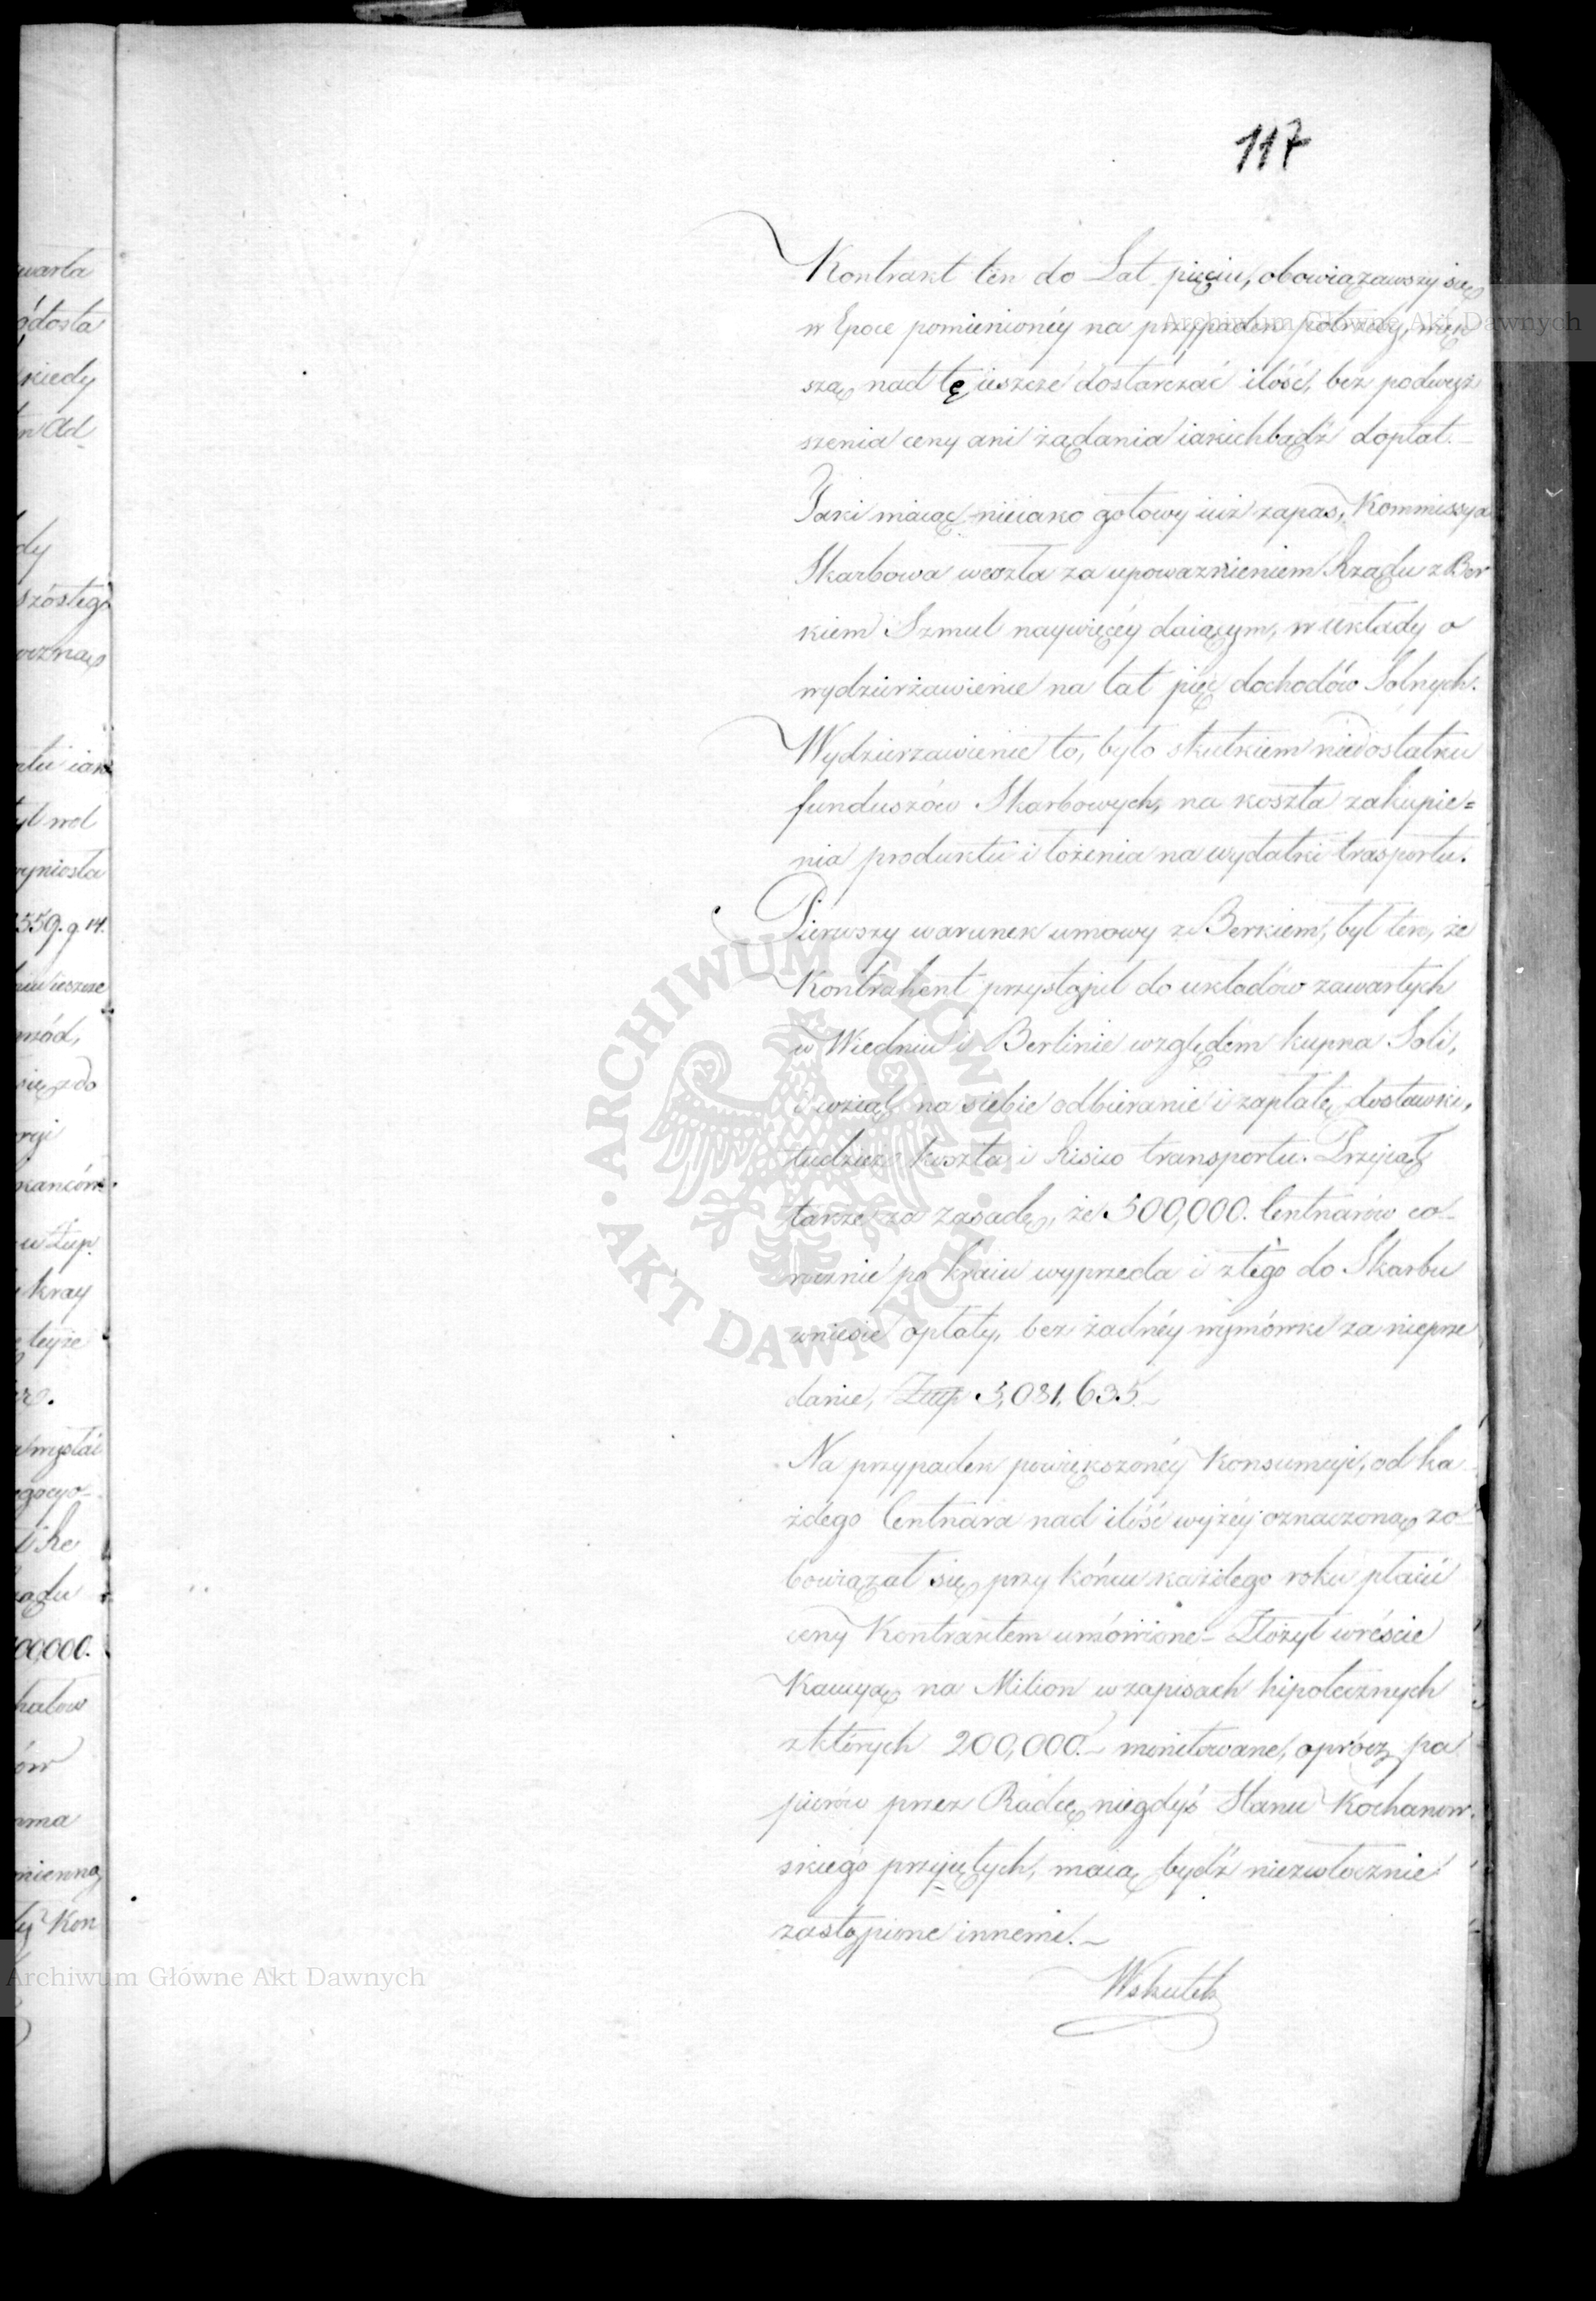 117
Kontrakt ten do Lat pięciu, obowiązawszy się
w Epoce pomienionéy na przypadek potrzeby, więk
szą nad tę ieszcze dostarczać ilość, bez podwyż
szenia ceny ani żądania iakichbądź dopłat.—
Taki maiąc nieiako gotowy iuż zapas, Kommissya
Skarbowa weszła za upoważnieniem Rządu z Ber
kiem Szmul naywięcéy daiącym, w układy o
wydzierżawienie na lat pięć dochodów Solnych.
Wydzierżawienie to, było skutkiem niedostatku
funduszów Skarbowych, na koszta zakupie=
nia produktu i łożenia na wydatki trasportu.
Pierwszy warunek umowy z Berkiem, był ten, że
Kontrahent przystąpił do układów zawartych
w Wiedniu i Berlinie względem kupna Soli,
i wziął na siebie odbieranie i zapłatę dostawki,
tudzież koszta i Risico transportu. Przyiął
także za zasadę, że 500,000. Centnarów co-
rocznie po kraiu wyprzeda i z tego do Skarbu
wniesie opłaty, bez żadnéy wymówki za nieprze
danie, Złłp 5,081,635.—
Na przypadek powiększonéy Konsumcyi, od ka-
żdego Centnara nad ilość wyżéy oznaczoną zo-
bowiązał się przy końcu każdego roku płacić
ceny Kontraktem umówione.— Złożył wreście
Kaucyą na Milion w zapisach hipotecznych
z których 200,000.— monitowane, oprócz pa
pierów przez Radcę niegdyś Stanu Kochanow-
skiego przyiętych, maią bydź niezwłocznie
zastąpione innemi.—
Wskutek
warta
kiedy
dy
szóstego
559. g 14.
kray
teyże
00,000.
Kon
ARCHIWUM GŁÓWNE · AKT DAWNYCH ·
Archiwum Główne Akt Dawnych
Archiwum Główne Akt Dawnych